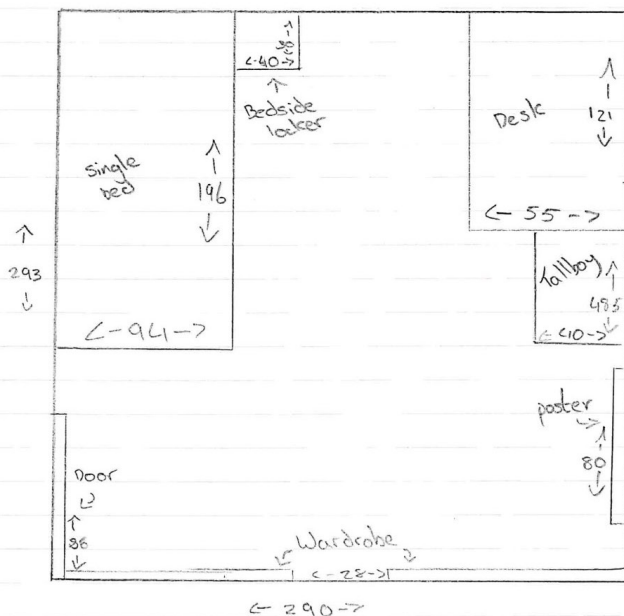 <-40->
Bedside
locker
Desk
121
single
bed
196
<- 55 ->
293
Tallboy
485
<-94->
<-40->
poster
80
Door
Wardrobe
<-28->
<- 290->